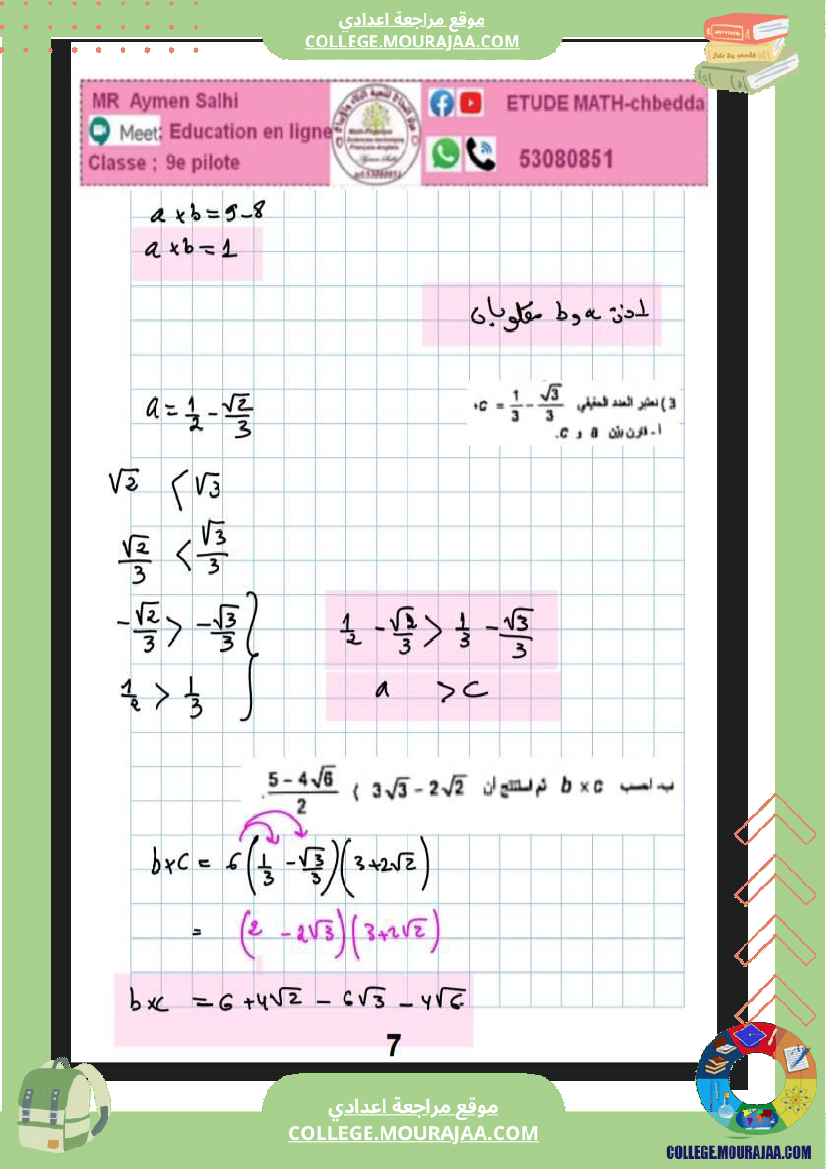 موقع مراجعة اعدادي
COLLEGE.MOURAJAA.COM
MR Aymen Salhi
Meet: Education en ligne
Classe ; 9e pilote
ETUDE MATH-chbedda
53080851
a × b = 9 - 8
a × b = 1
اذن a و b مقلوبان
3) نعتبر العدد الحقيقي c = 1/3 - √3/3
أ- قارن بين a و c.
a = 1/2 - √2/3
√2 < √3
√2/3 < √3/3
-√2/3 > -√3/3
1/2 > 1/3
1/2 - √2/3 > 1/3 - √3/3
a > c
ب- احسب b × c ثم استنتج أن 3√3 - 2√2 ⟩ (5 - 4√6)/2.
b×c = 6(1/3 - √3/3)(3+2√2)
= (2 - 2√3)(3+2√2)
b×c = 6 + 4√2 - 6√3 - 4√6
7
موقع مراجعة اعدادي
COLLEGE.MOURAJAA.COM
COLLEGE.MOURAJAA.COM